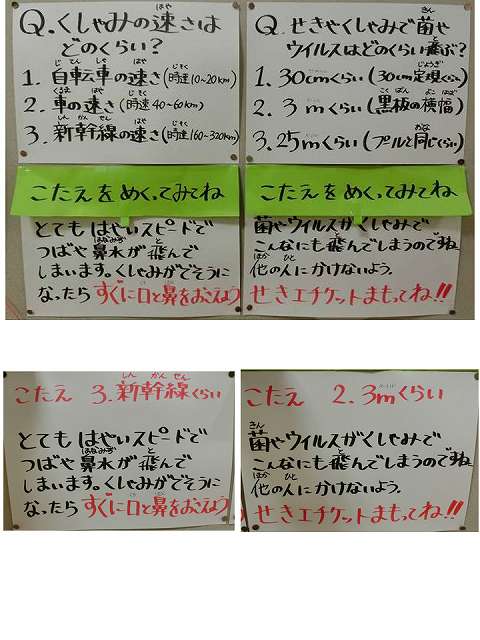 Q.くしゃみの速さは
どのくらい?
1. 自転車の速さ(時速10~20km)
2. 車の速さ(時速40~60km)
3. 新幹線の速さ(時速160~320km)
こたえをめくってみてね
とてもはやいスピードで
つばや鼻水が飛んで
しまいます。くしゃみがでそうに
なったらすぐに口と鼻をおさえよう
Q.せきやくしゃみで菌や
ウイルスはどのくらい飛ぶ?
1. 30cmくらい(30cm定規くらい
2. 3mくらい(黒板の横幅
3. 25mくらい(プールと同じくらい)
こたえをめくってみてね
菌やウイルスがくしゃみで
こんなにも飛んでしまうのですね
他の人にかけないよう.
せきエチケットまもってね!!
こたえ 3.新幹線くらい
とてもはやいスピードで
つばや鼻水が飛んで
しまいます。くしゃみがでそうに
なったらすぐに口と鼻をおさえよう
こたえ 2.3mくらい
菌やウイルスがくしゃみで
こんなにも飛んでしまうのですね
他の人にかけないよう.
せきエチケットまもってね!!